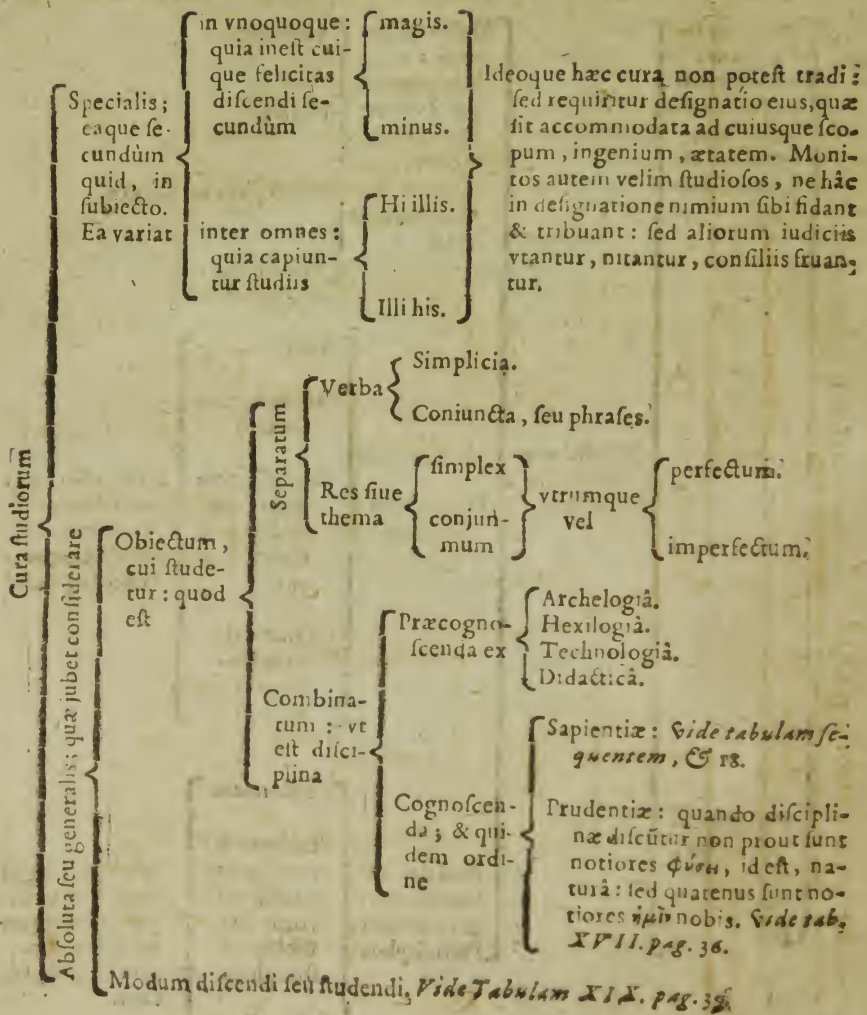 Cura ſtudiorum
Specialis;
eaque ſe-
cundùm
quid, in
ſubiecto.
Ea variat
in vnoquoque:
quia ineſt cui-
que felicitas
diſcendi ſe-
cundùm
magis.
minus.
inter omnes:
quia capiun-
tur ſtudiis
Hi illis.
Illi his.
Ideoque hæc cura non poteſt tradi:
ſed requiritur deſignatio eius, quæ
ſit accommodata ad cuiuſque ſco-
pum, ingenium, ætatem. Moni-
tos autem velim ſtudioſos, ne hâc
in deſignatione nimium ſibi fidant
& tribuant: ſed aliorum iudiciis
vtantur, nitantur, conſiliis fruan-
tur.
Abſoluta ſeu generalis; quæ jubet conſiderare
Obiectum,
cui ſtude-
tur: quod
eſt
Separatum
Verba
Simplicia.
Coniuncta, ſeu phraſes.
Res ſiue
thema
ſimplex
conjun-
mum
vtrumque
vel
perfectum.
imperfectum.
Combina-
tum: vt
eſt diſci-
plina
Præcogno-
ſcenda ex
Archelogiâ.
Hexilogiâ.
Technologiâ.
Didacticâ.
Cognoſcen-
da; & qui-
dem ordi-
ne
Sapientiæ: Vide tabulam ſe-
quentem, & 18.
Prudentiæ: quando diſcipli-
næ diſcũtur non prout ſunt
notiores φύσει, id eſt, na-
turâ: ſed quatenus ſunt no-
tiores ἡμῖν nobis. Vide tab.
XVII. pag. 36.
Modum diſcendi ſeu ſtudendi, Vide Tabulam XIX. pag.